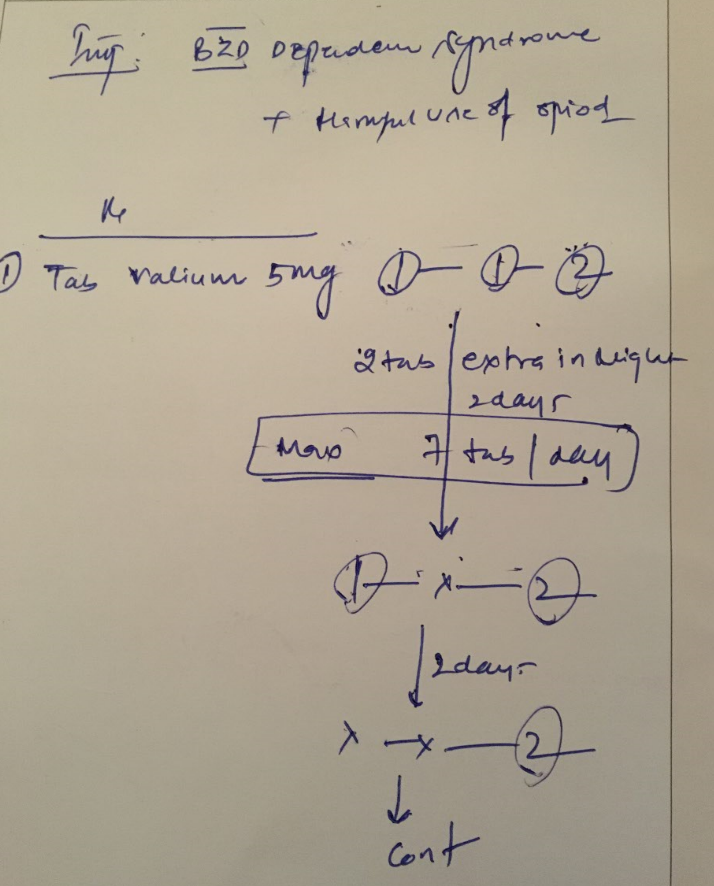 Imp: BZD Dependence Syndrome
+ Harmful use of opiod
Rx
① Tab Valium 5mg ① — ① — ②
2 tab extra in night
2 days
Max 7 tab / day
① — x — ②
2 days
x — x — ②
Cont